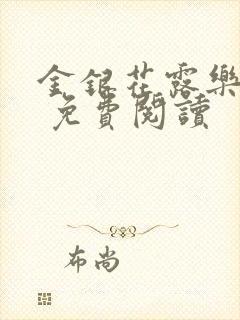 金銀花露樂
免費閱讀
布尚